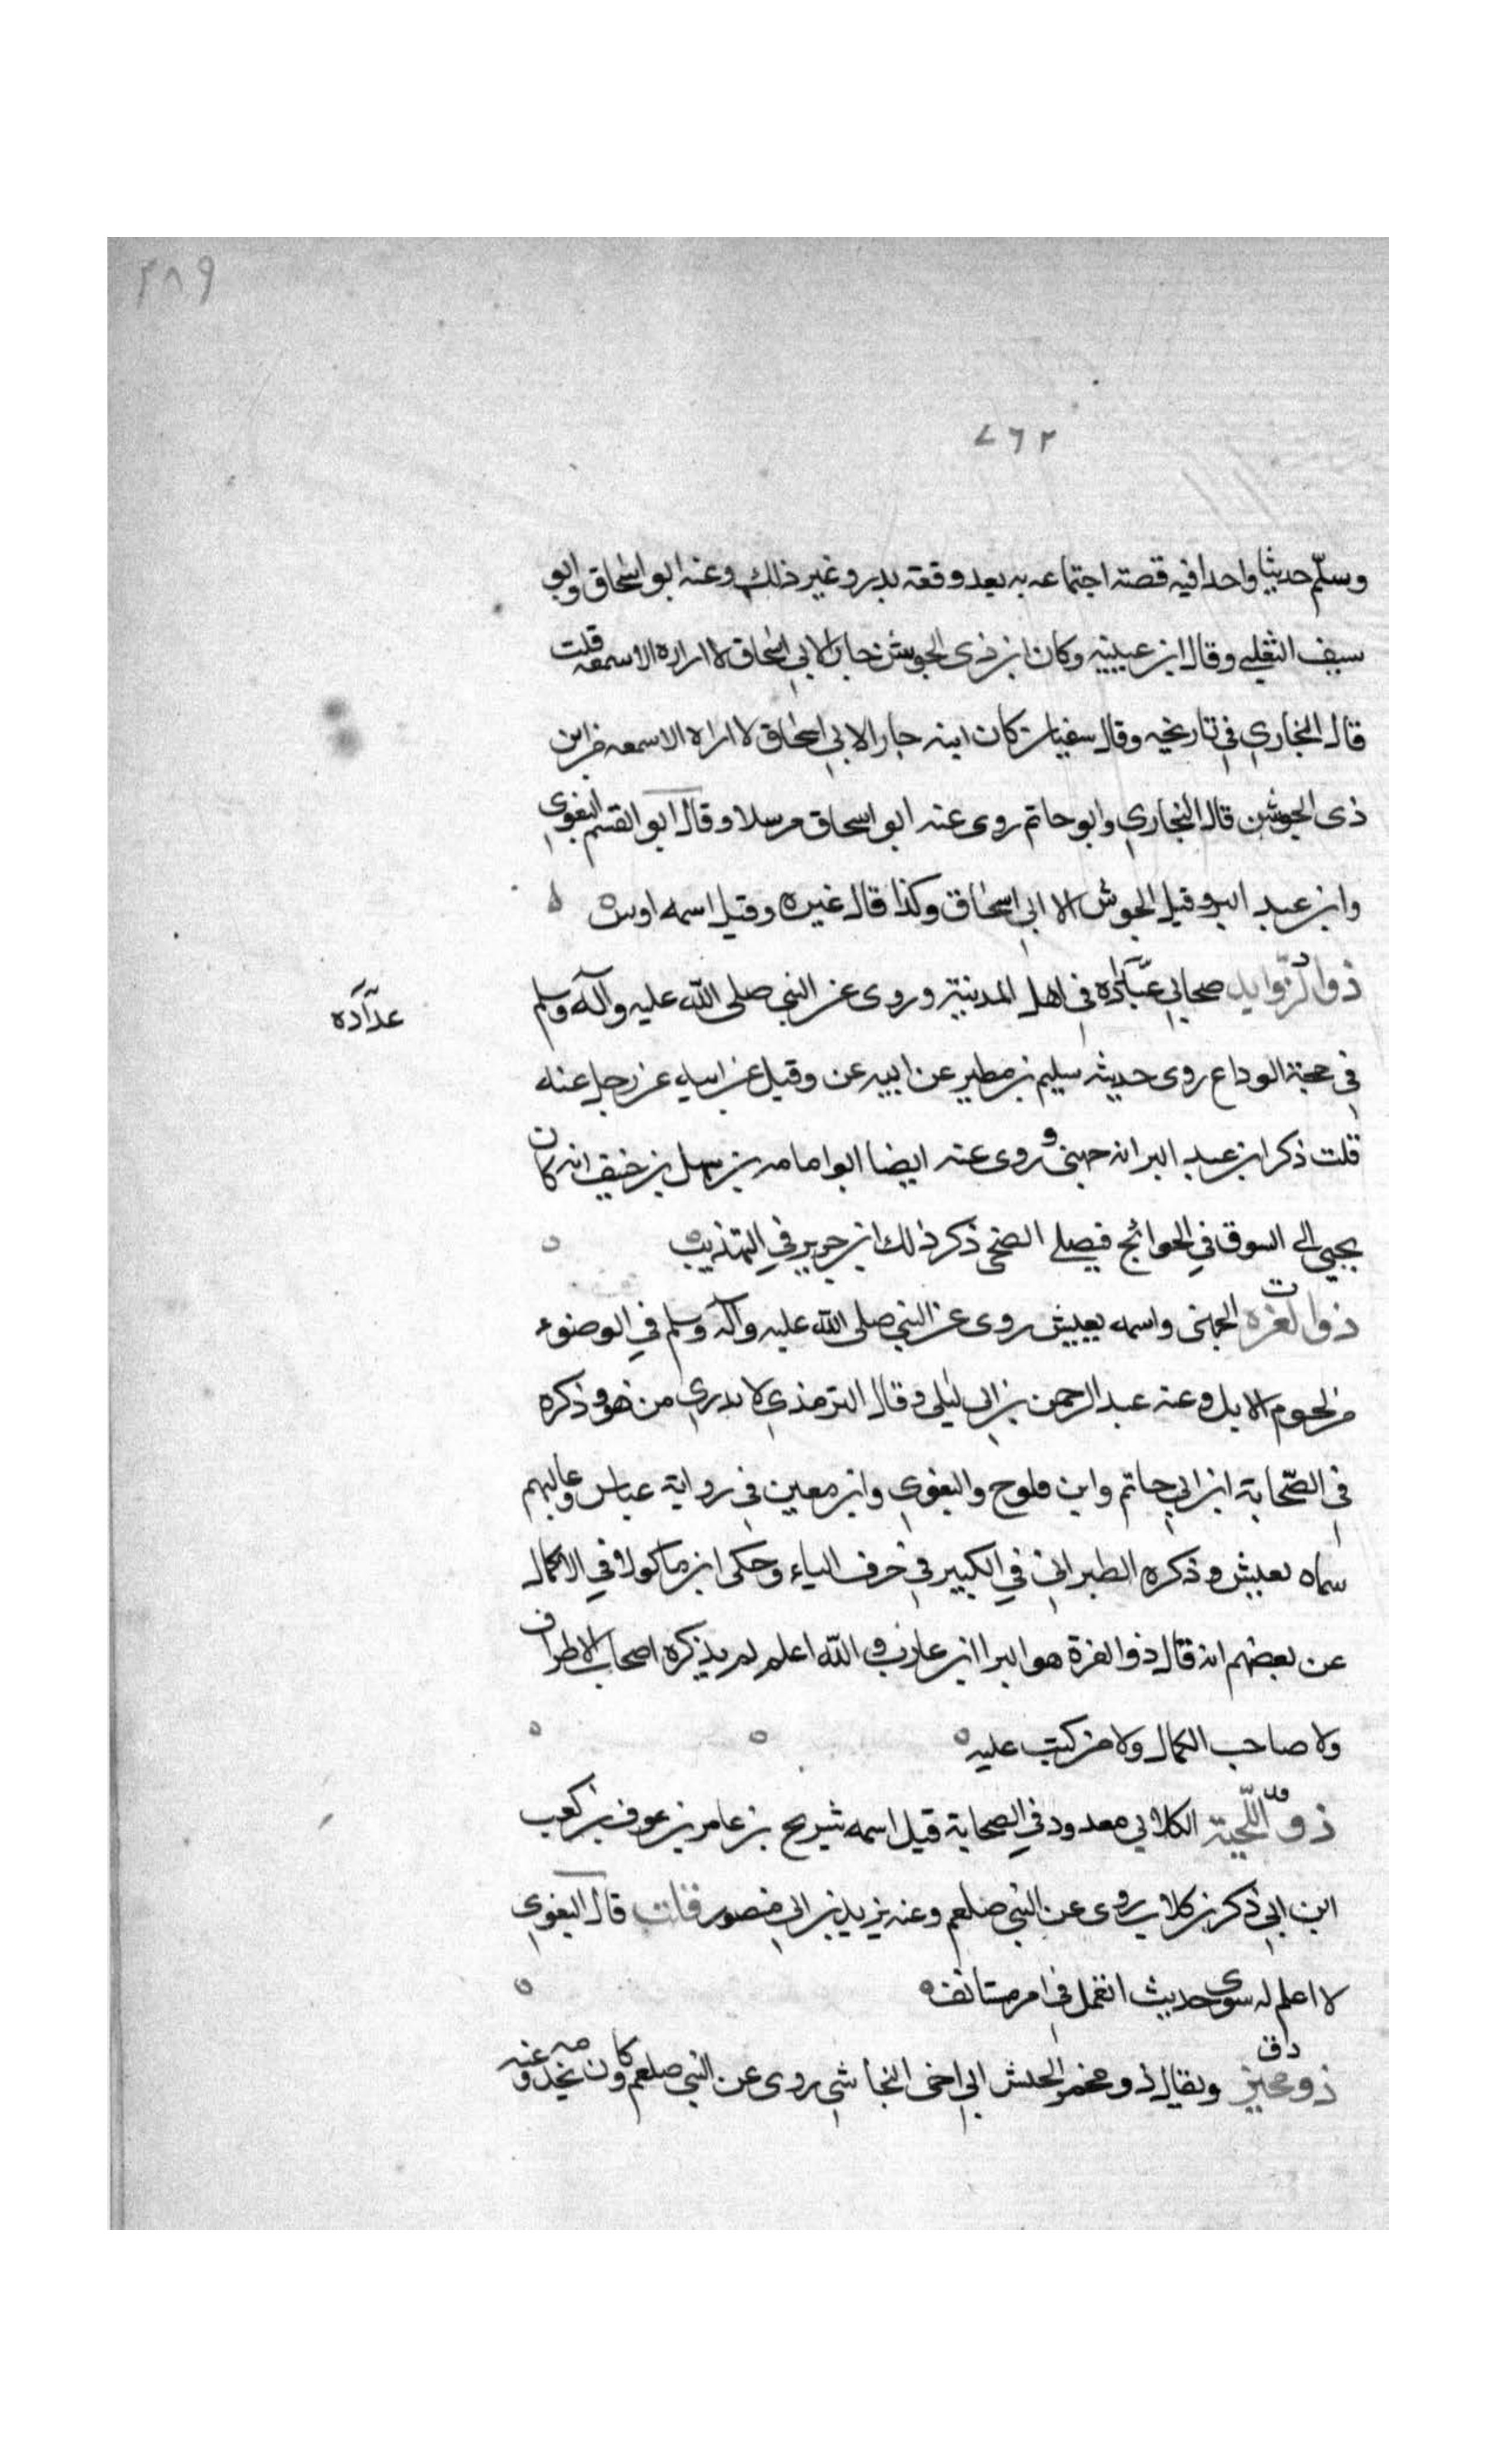 ٢٨٩
٧٦٢
وسلّم حديثا واحدا فيه قصة اجتماعه به بعد وقعة بدر وغير ذلك وعنه ابو اسحاق وابو
سيف الثقلبى وقال ابن عيينة وكان ابن ذى الجوشن جارا لابي اسحاق لا اراه الا سمعه قلت
قال البخاري في تاريخه وقال سفيان كان ابنه جارا لابي اسحاق لا اراه الا سمعه من ابن
ذى الجوشن قال البخاري وابو حاتم روى عنه ابو اسحاق مرسلا وقال ابو القسم البغوي
وابن عبد البر وقيل الجوش الا ابي اسحاق وكذا قال غيره وقيل اسمه اوس
ذو الزوايد صحابي عدّاده في اهل المدينة وروى عن النبي صلى الله عليه وآله وسلم
عدآده
في حجة الوداع روى حديثه سليم بن مطير عن ابيه عن وقيل عن ابيه عن رجل عنه
قلت ذكر ابن عبد البر انه جهنى وروى عنه ايضا ابو امامه بن سهل بن حنيف انه كان
يجيى الى السوق في الحوائج فيصلى الضحى ذكر ذلك ابن جرير في التهذيب
ت
ذو الغرة الجهنى واسمه يعيش روى عن النبي صلى الله عليه وآله وسلم في الوضوء
من لحوم الابل وعنه عبد الرحمن بن ابي ليلى وقال الترمذي لا يدري من هو وذكره
في الصّحابة ابن ابي حاتم وابن فلوح والبغوي وابن معين في رواية عباس وعاليهم
سماه يعيش وذكره الطبراني في الكبير في حرف الياء وحكى ابن ماكولا في الاكمال
عن بعضهم انه قال ذو الغرة هو البرا ابن عازب والله اعلم لم يذكره اصحاب الاطراف
ولا صاحب الكمال ولا من كتب عليه
ذو اللّحية الكلابي معدود في الصحابة قيل اسمه شريح بن عامر بن عوف بن كعب
ابن ابي ذكر بن كلاب روى عن النبي صلعم وعنه يزيد بن ابي منصور قلت قال البغوي
لا اعلم له سوى حديث انعمل في امر مستانف
دق
ذو مخبر ويقال ذو مخمر الحبش ابي اخى النجاشي روى عن النبي صلعم وكان يخدمه وعنه